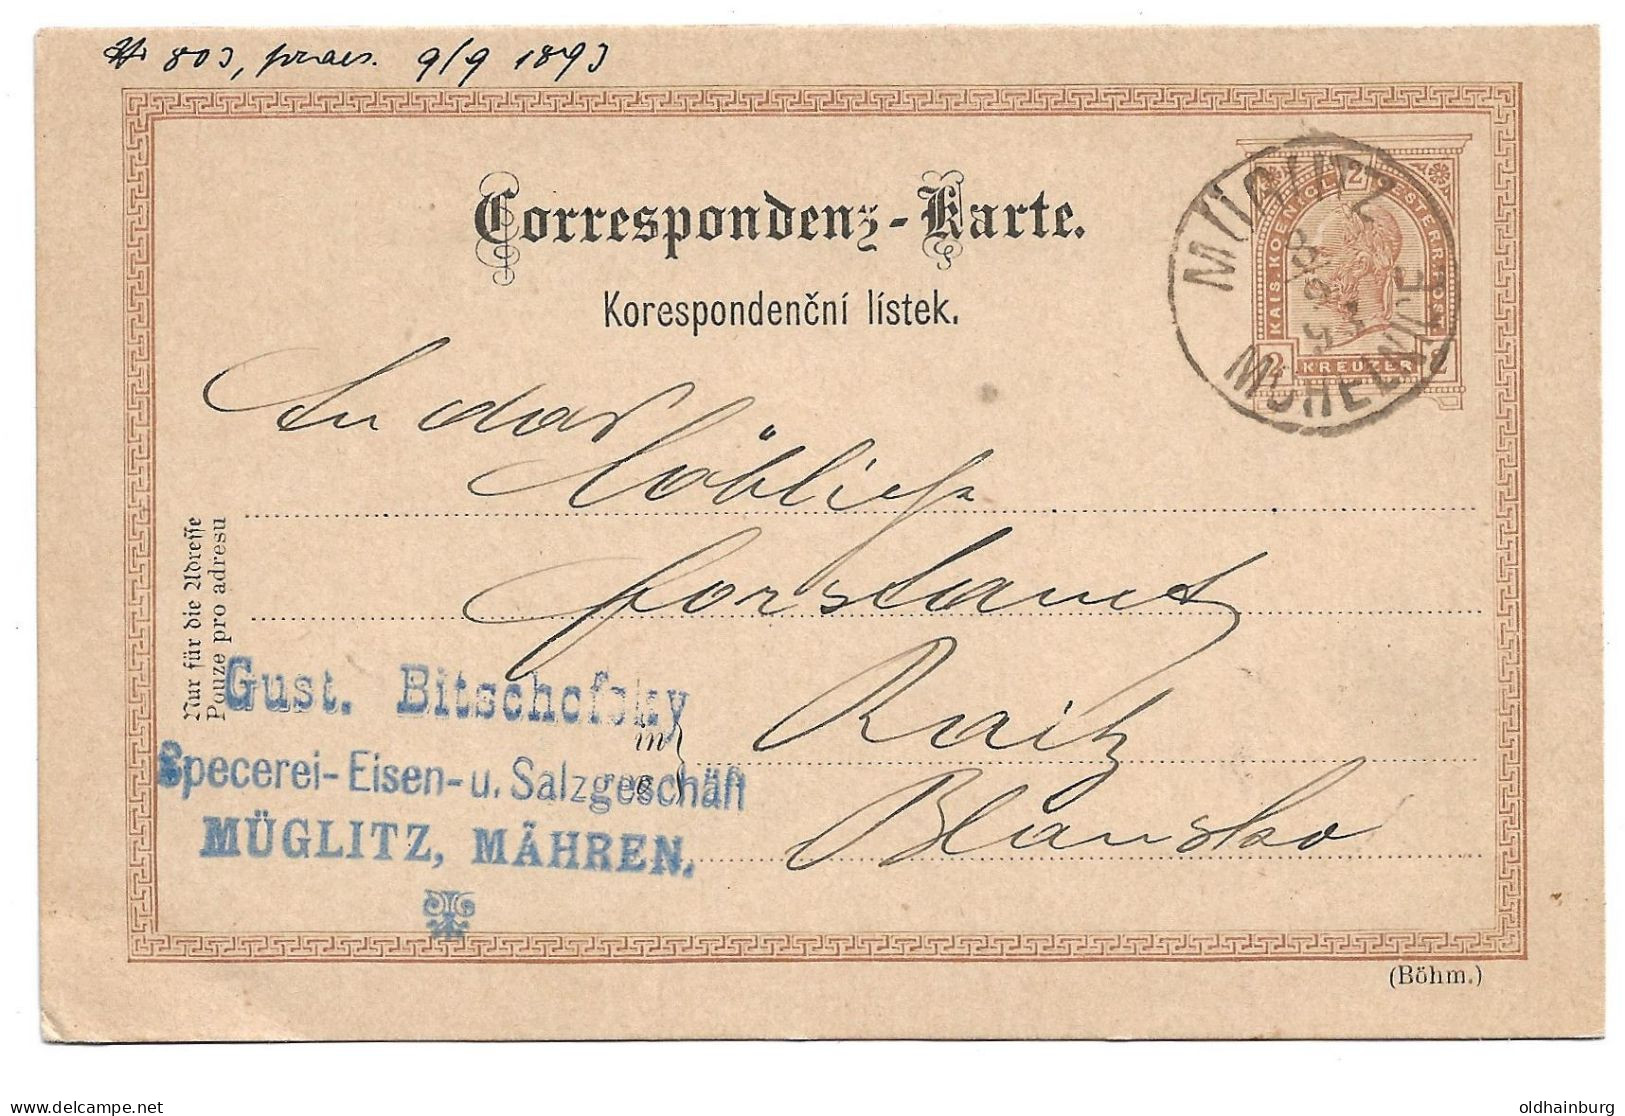 № 803, praes. 9/9 1893
Correspondenz-Karte.
Korespondenční lístek.
MÜGLITZ
8 9 93
MOHELNICE
KAIS. KOENIGL. 2 OESTERR.
2 KREUZER 2
An das
Löbliche
Forstamt
Raitz
Blansko
Nur für die Adresse
Pouze pro adresu
in
Gust. Bitschofsky
Specerei-Eisen-u. Salzgeschäft
MÜGLITZ, MÄHREN.
(Böhm.)
delcampe.net
oldhainburg